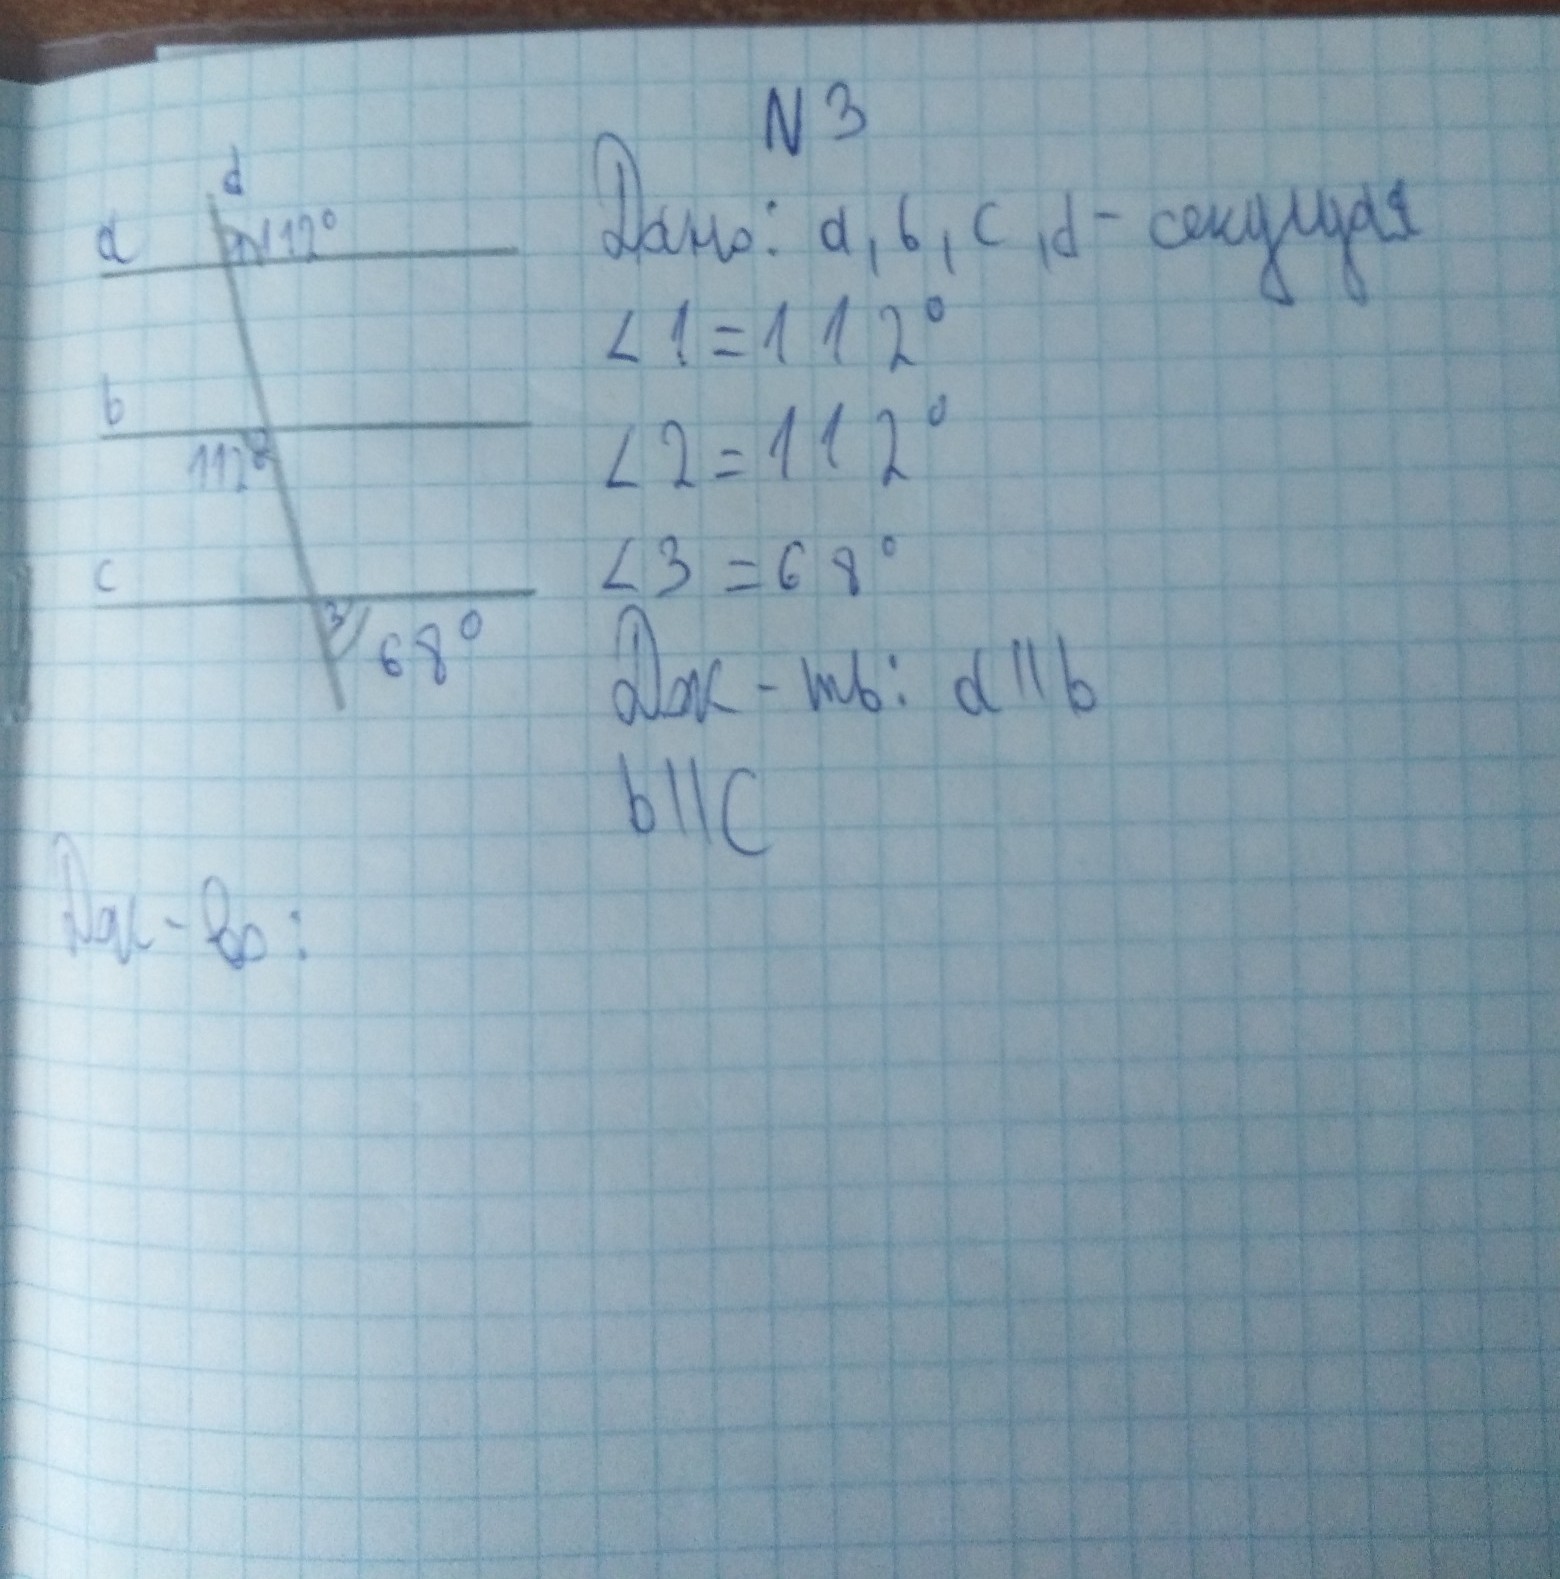 N 3
d
a 1 112°
Дано: a, b, c, d - секущая
∠1 = 112°
b
112° 2
∠2 = 112°
c
∠3 = 68°
3 68°
Док-ть: a || b
b || c
Док-во: